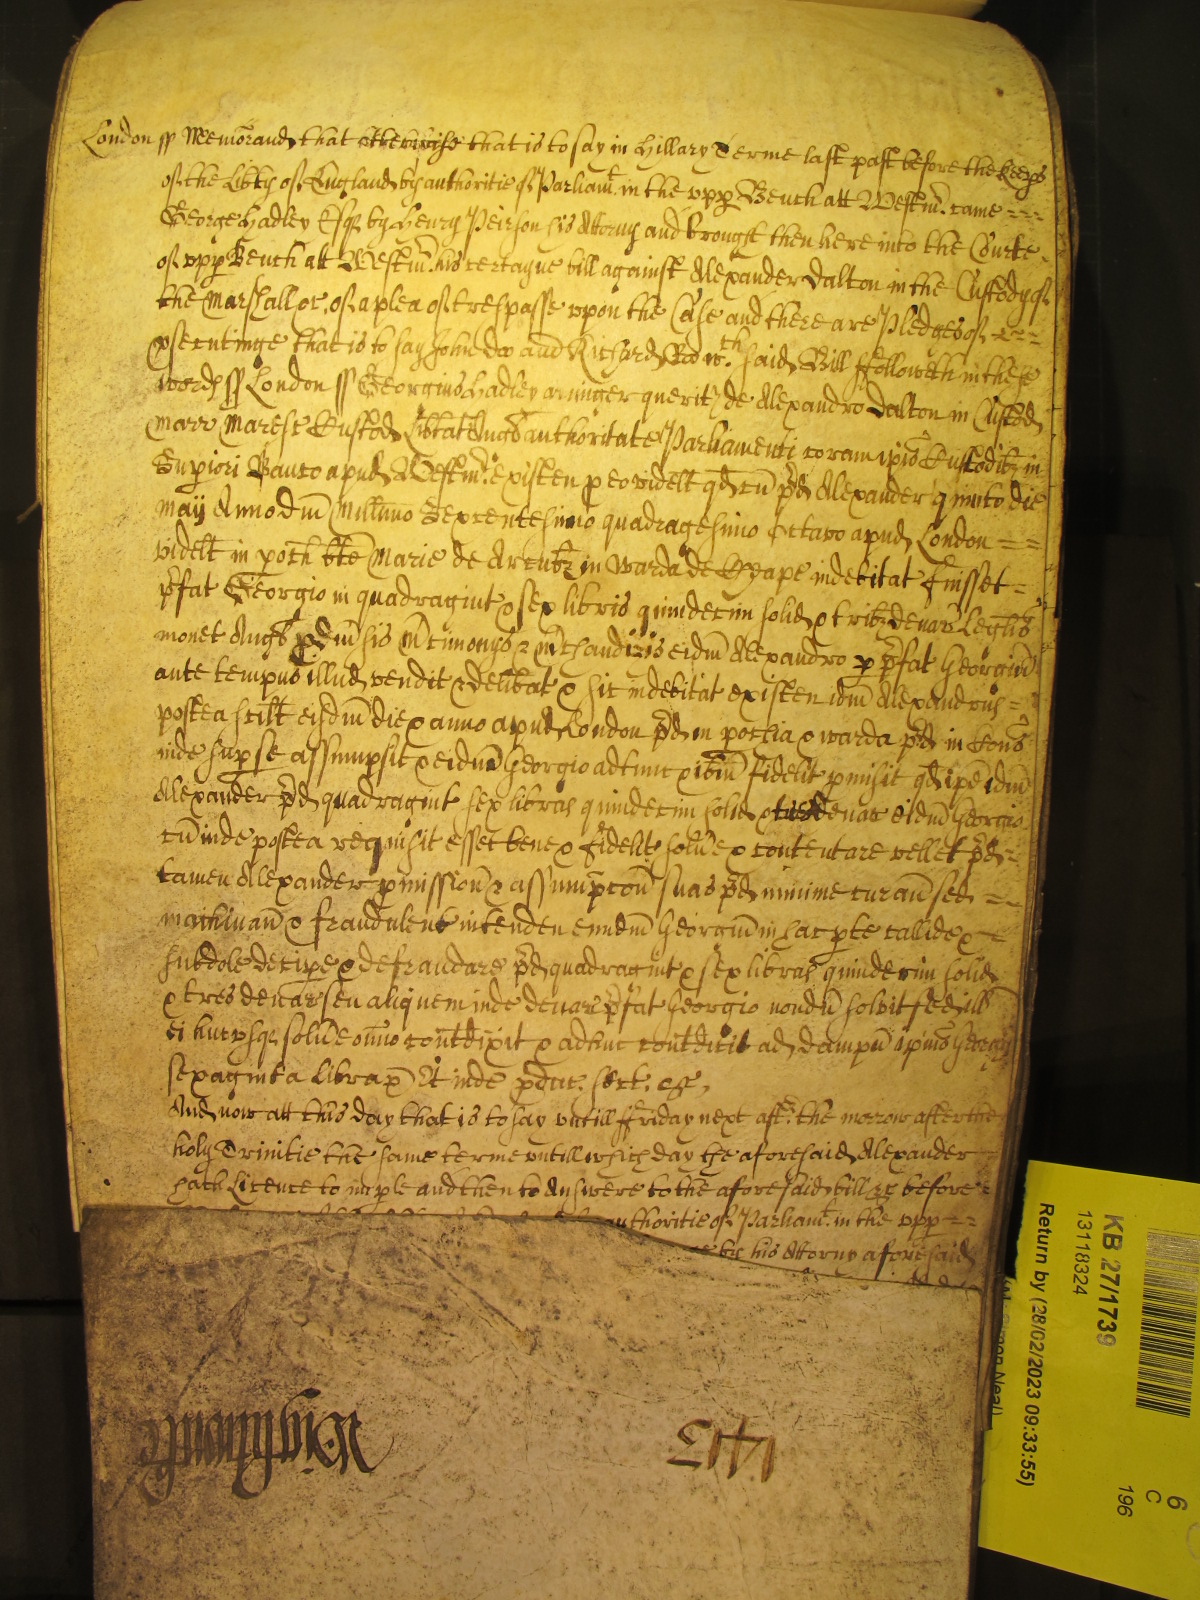 London ss Memorand that otherwise that is to say in Hillary Terme last past before the Keeps
of the Libtys of England by authoritie of Parliamt. in the upp Bench att Westm. came
George Hadley Esqr by Henry Peirson his Attorny and brought then here into the Courte
of upp Bench att Westm. his certayne bill against Alexander Dalton in the Custody of
the Marshall &c. of a plea of trespasse upon the Case and there are Pledges of
psecutinge that is to say John Doo and Richard Roo wch. said Bill ffolloweth in these
words ss London ss Georgius Hadley armiger querit de Alexandro Dalton in Custod
marr maresc Custod Libtat Angl authoritate Parliamenti coram ipis Custodibz in
Supiori Banco apud Westm. existen p eo videlt qd cu pd Alexander quinto die
Maij Anno dni Millimo Sexcentesimo quadragesimo octavo apud London
videlt in poch bte Marie de Arcubz in Warda de Cheape indebitat fuisset
pfat Georgio in quadragint & sex libris quindecim solid & tribz denar Leglis
monet Angl p dmsis mcimonys & mchandizis eidm Alexandro p pfat Georgiu
ante tempus illud vendit & delibat & sic indebitat existen idm Alexandrus
postea scilt eisdm die & anno apud London pd in pochia & warda pd in Cons
inde sup se assumpsit & eidm Georgio adtunc & ibm fidelit pmisit qd ipe idm
Alexander pd quadragint & sex libras quindecim solid & tres denar eidm Georgio
cu inde postea requisit esset bene & fidelit solve & contentare vellet pd
tamen Alexander pmission & assumpcon suas pd minime curan sed
machinan & fraudulent intenden eundm Georgiu in hac pte callide &
subdole decipe & defraudare pd quadragint & sex libras quindecim solid
& tres denar seu aliquem inde denar pfat Georgio nondu solvit sed ill
ei hucusqz solve omio contdixit & adhuc contdicit ad dampn ipius Georgij
sexaginta librax Et inde pduc. sect. &c.
And now att this day that is to say untill ffriday next aft. the morrow after the
holy Trinitie the same terme untill which day the aforesaid Alexander
hath Licence to imple and then to Answere to the aforesaid bill &c before
authoritie of Parliamt. in the upp
by his Attorny aforesaid
1413
KB 27/1739
13118324
Return by (28/02/2023 09:33:55)
6
C
196